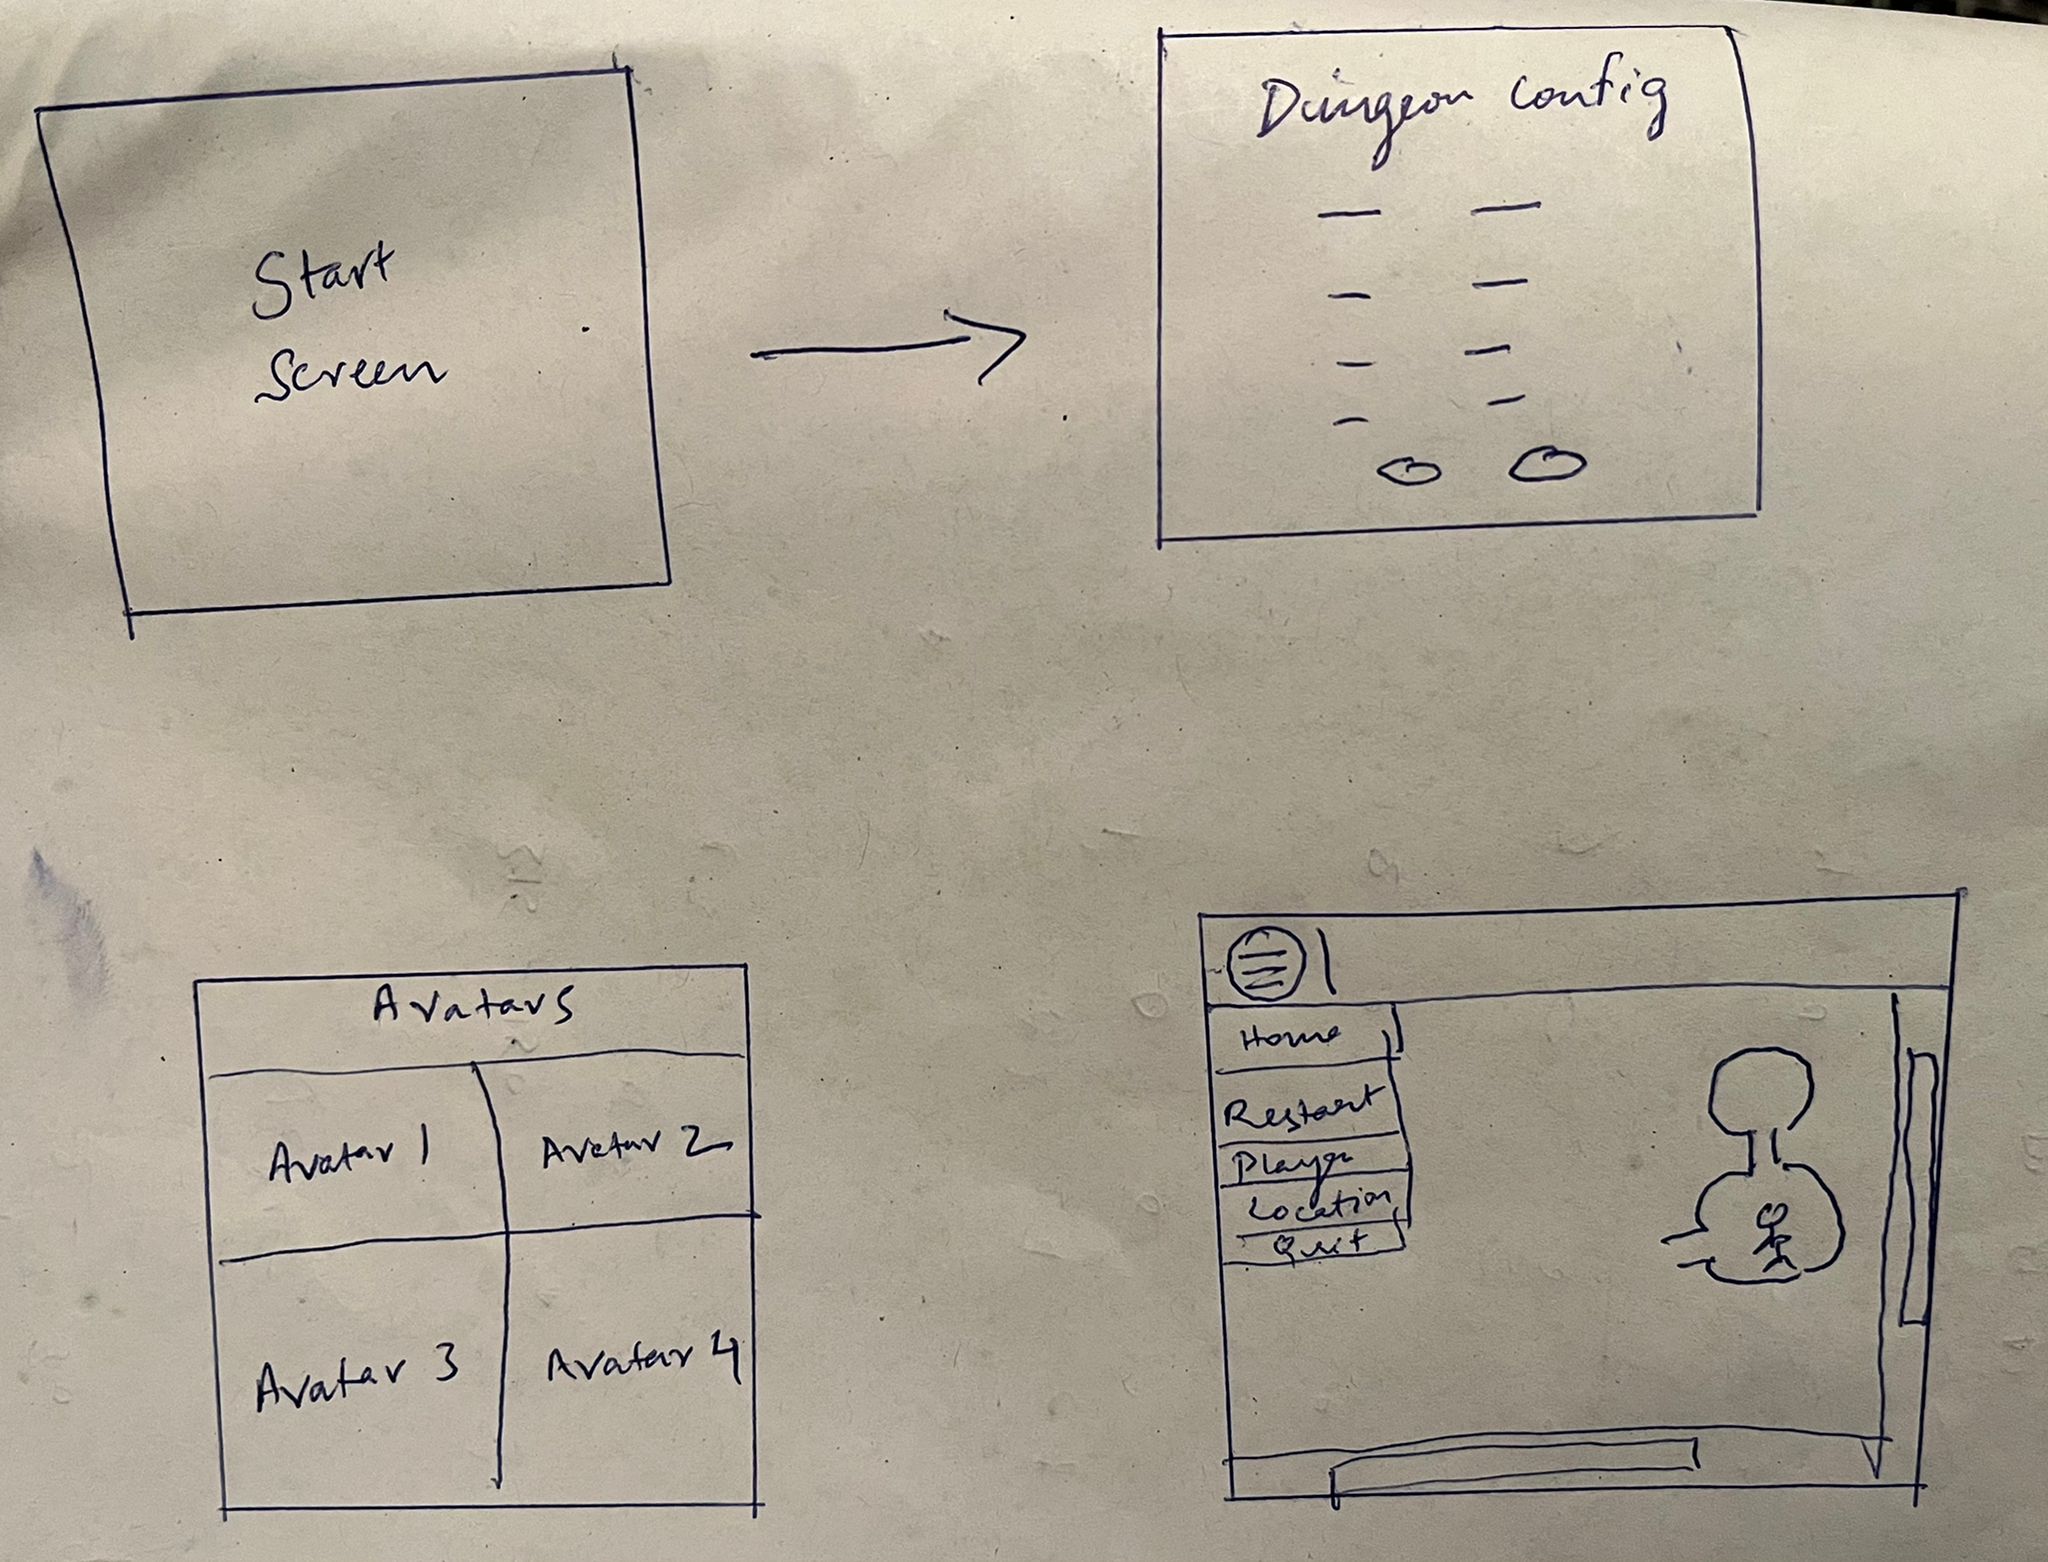 Start
Screen
Dungeon Config
Avatars
Avatar 1
Avatar 2
Avatar 3
Avatar 4
Home
Restart
Player
Location
Quit